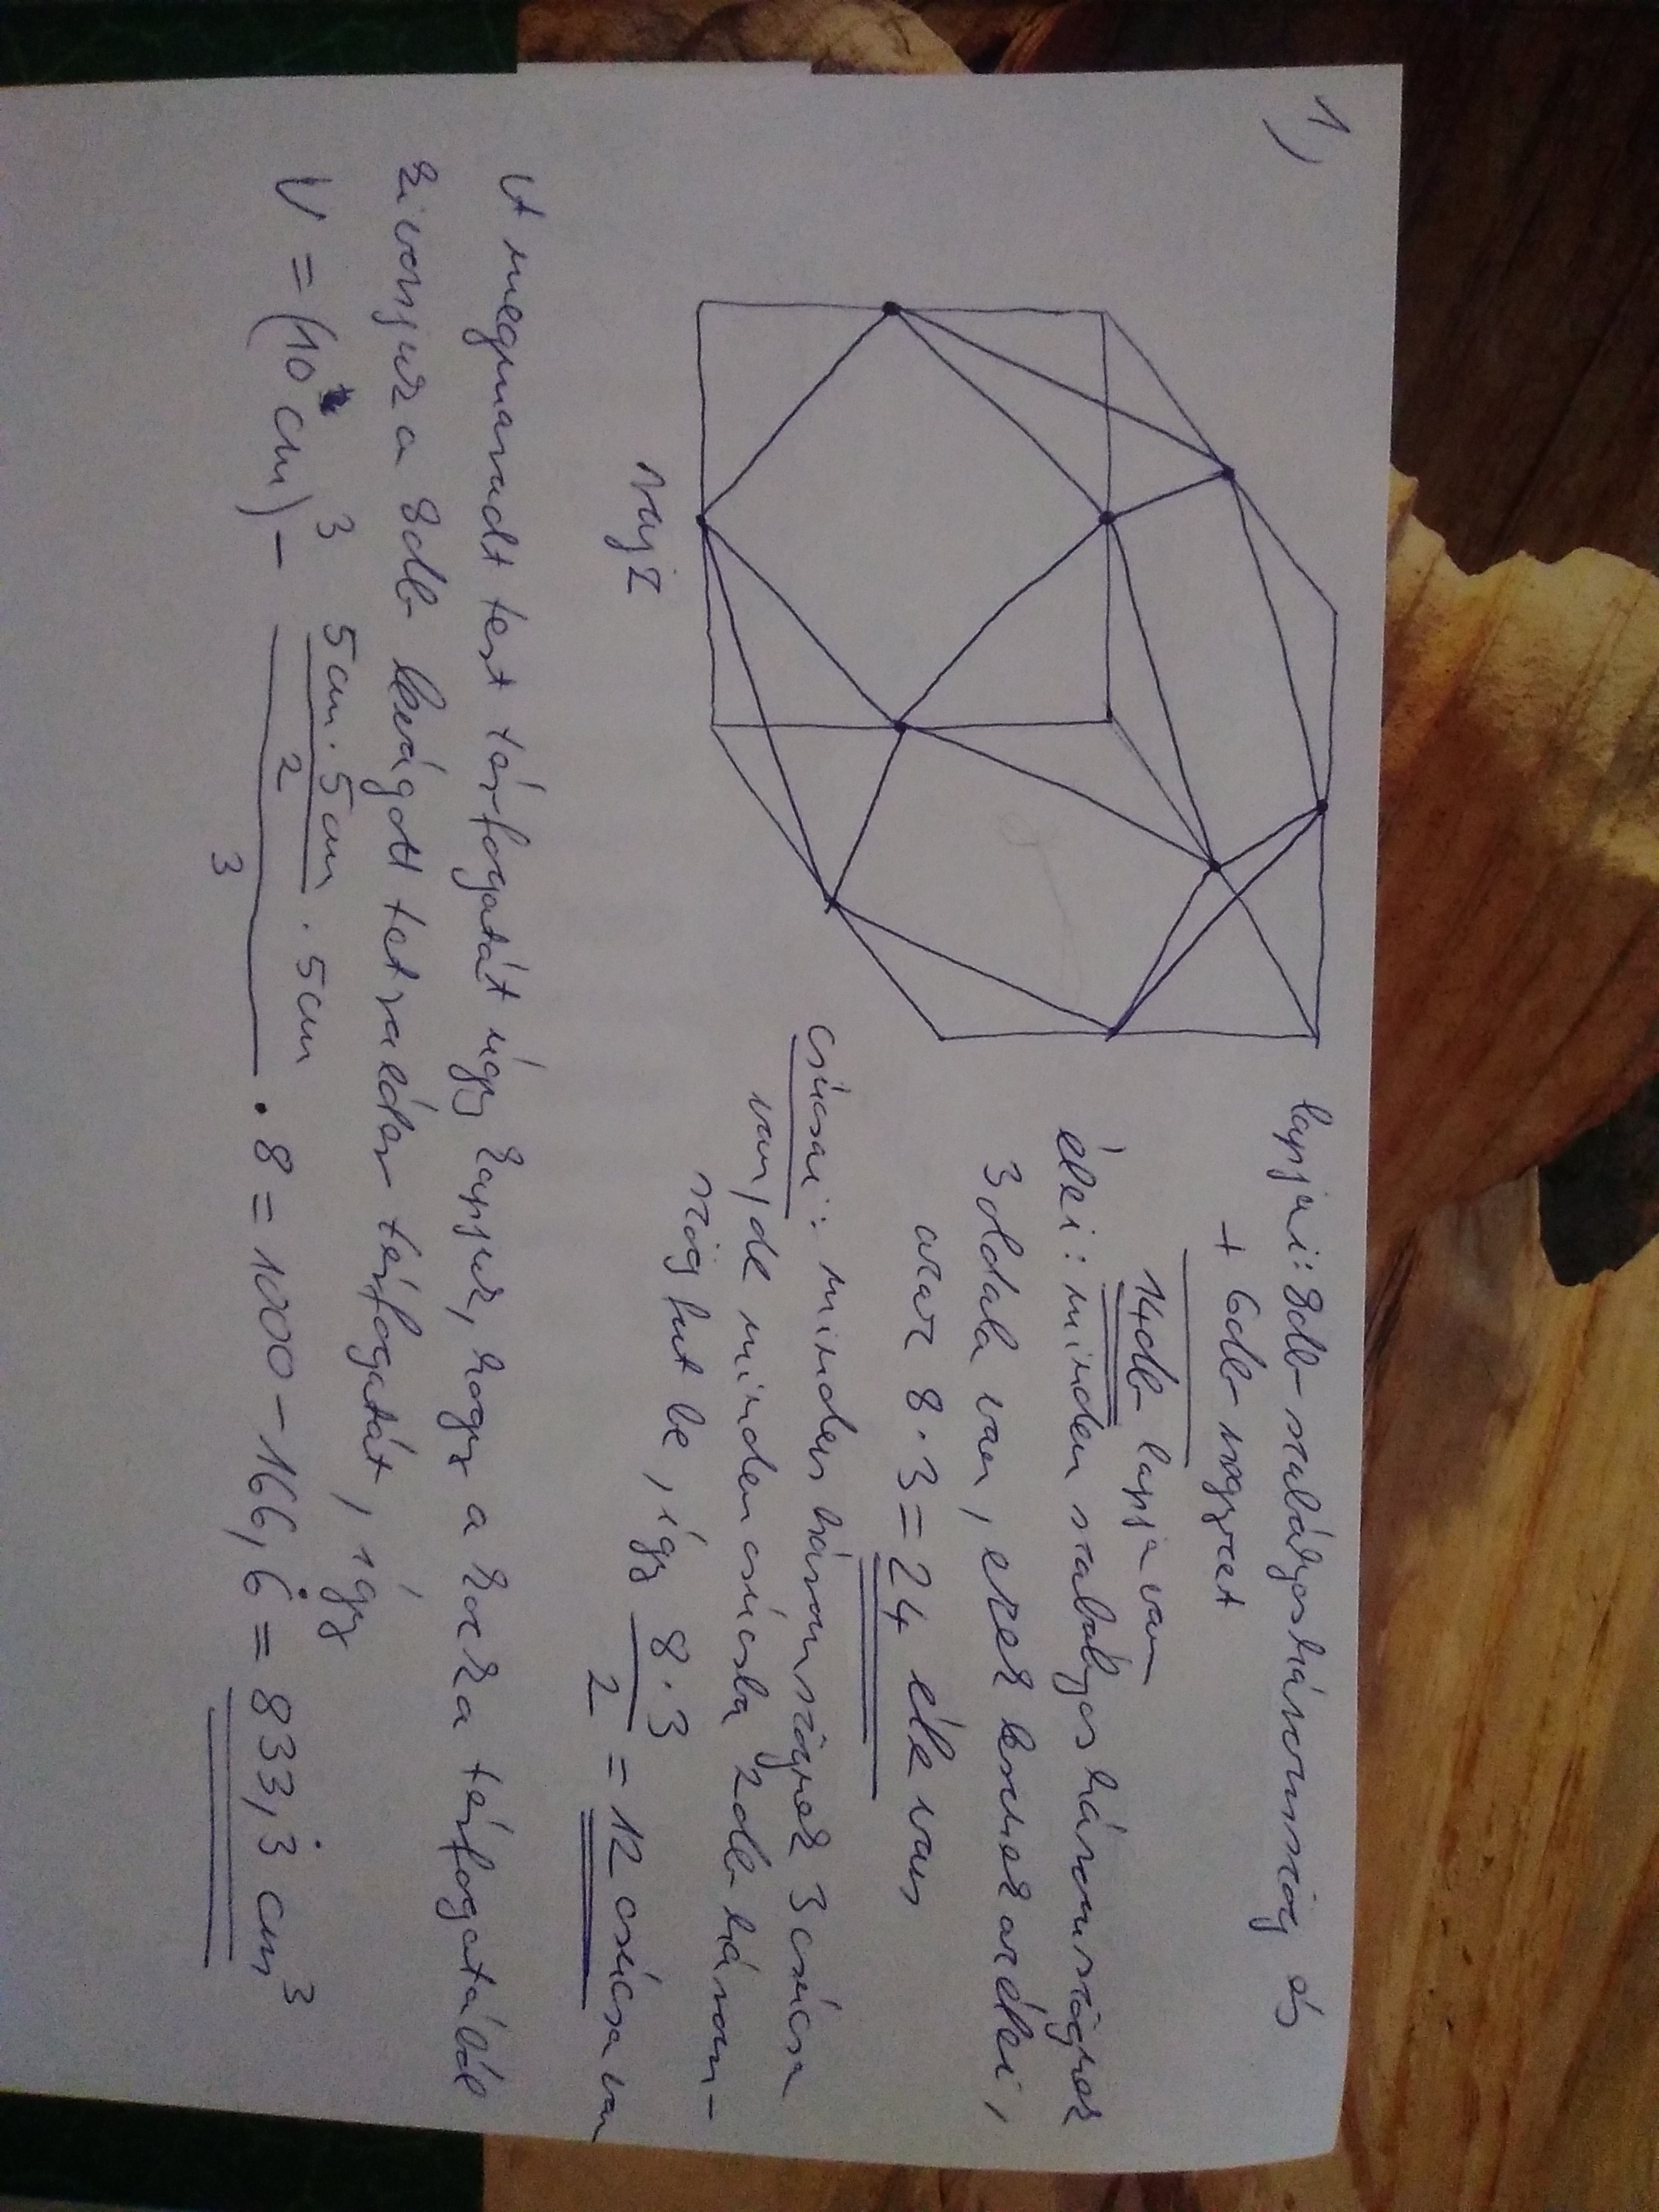 1,
lapjai: 8db szabályos háromszög és
+ 6db négyzet
14db lapja van
élei: minden szabályos háromszögnek
3 oldala van, ezek lesznek az élei,
azaz 8 · 3 = 24 éle van
csúcsai: minden háromszögnek 3 csúcsa
van, de minden csúcsba 2db három-
szög fut be, így 8 · 3 / 2 = 12 csúcsa van
rajz
A megmaradt test térfogatát úgy kapjuk, hogy a kocka térfogatából
kivonjuk a 8db levágott tetraéder térfogatát, így
V = (10 cm)³ - 5cm · 5cm / 2 · 5cm / 3 · 8 = 1000 - 166,6̇ = 833,3̇ cm³